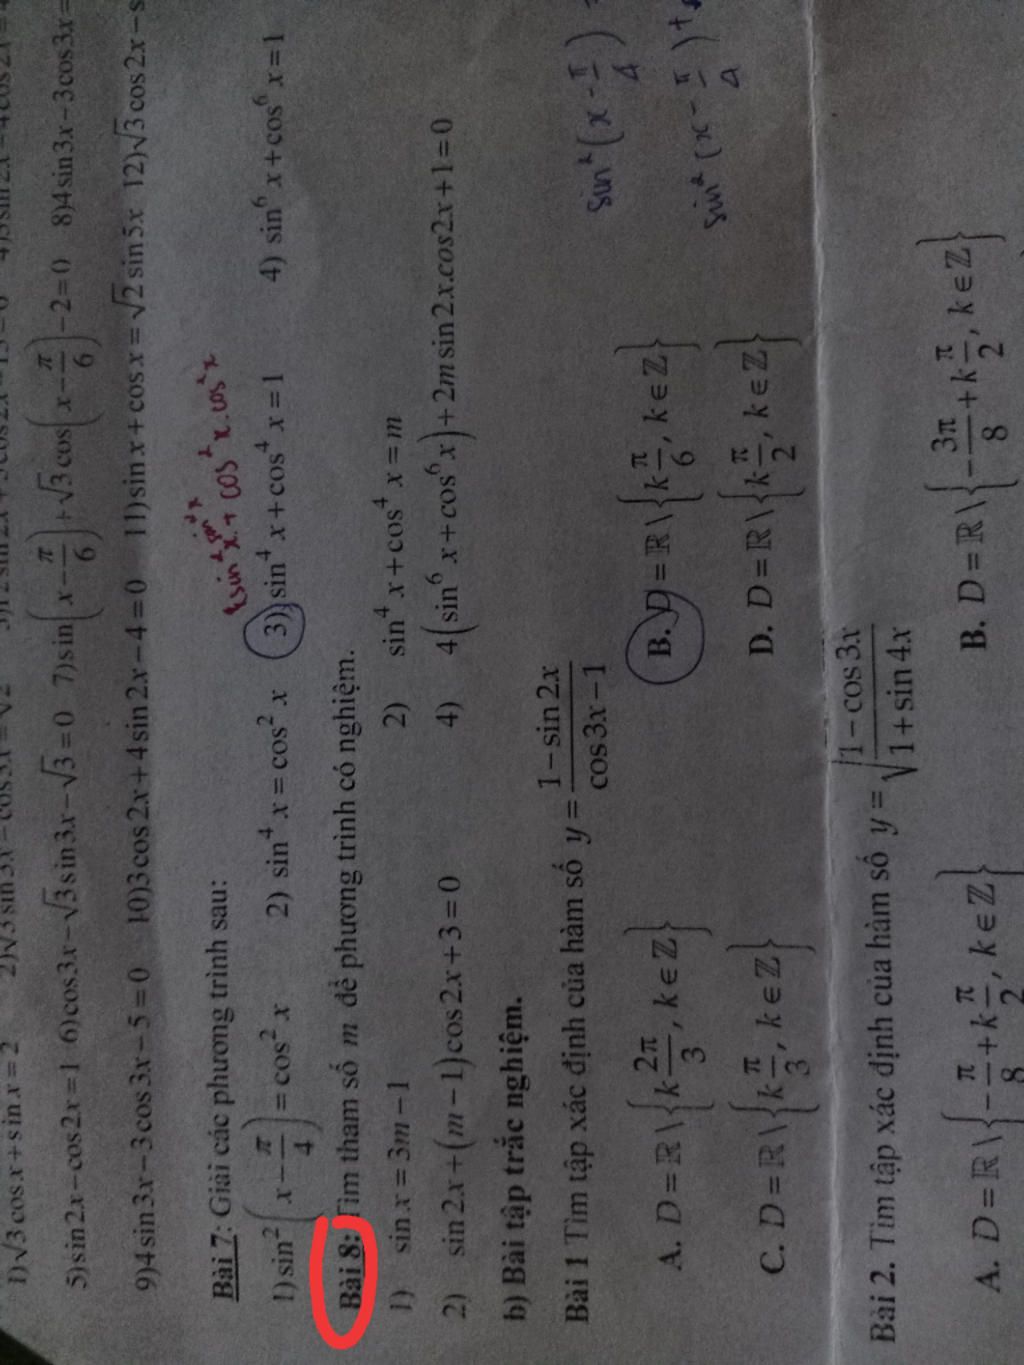 1)√3cosx+sinx=2 2)√3sin3x−cos3x=√2
5)sin2x−cos2x=1 6)cos3x−√3sin3x−√3=0 7)sin(x−π/6)+√3cos(x−π/6)−2=0 8)4sin3x−3cos3x=
9)4sin3x−3cos3x−5=0 10)3cos2x+4sin2x−4=0 11)sinx+cosx=√2sin5x 12)√3cos2x−s
Bài 7: Giải các phương trình sau:
1)sin²(x−π/4)=cos²x 2) sin⁴x=cos²x 3) sin⁴x+cos⁴x=1 4) sin⁶x+cos⁶x=1
Bài 8: Tìm tham số m để phương trình có nghiệm.
1) sinx=3m−1 2) sin⁴x+cos⁴x=m
2) sin2x+(m−1)cos2x+3=0 4) 4(sin⁶x+cos⁶x)+2msin2x.cos2x+1=0
b) Bài tập trắc nghiệm.
Bài 1 Tìm tập xác định của hàm số y=(1−sin2x)/(cos3x−1)
sin²(x−π/4)=
A. D=ℝ\{k2π/3, k∈ℤ} B. D=ℝ\{kπ/6, k∈ℤ}
sin²(x−π/4)+
C. D=ℝ\{kπ/3, k∈ℤ} D. D=ℝ\{kπ/2, k∈ℤ}
Bài 2. Tìm tập xác định của hàm số y=√((1−cos3x)/(1+sin4x))
A. D=ℝ\{−π/8+kπ/2, k∈ℤ} B. D=ℝ\{−3π/8+kπ/2, k∈ℤ}